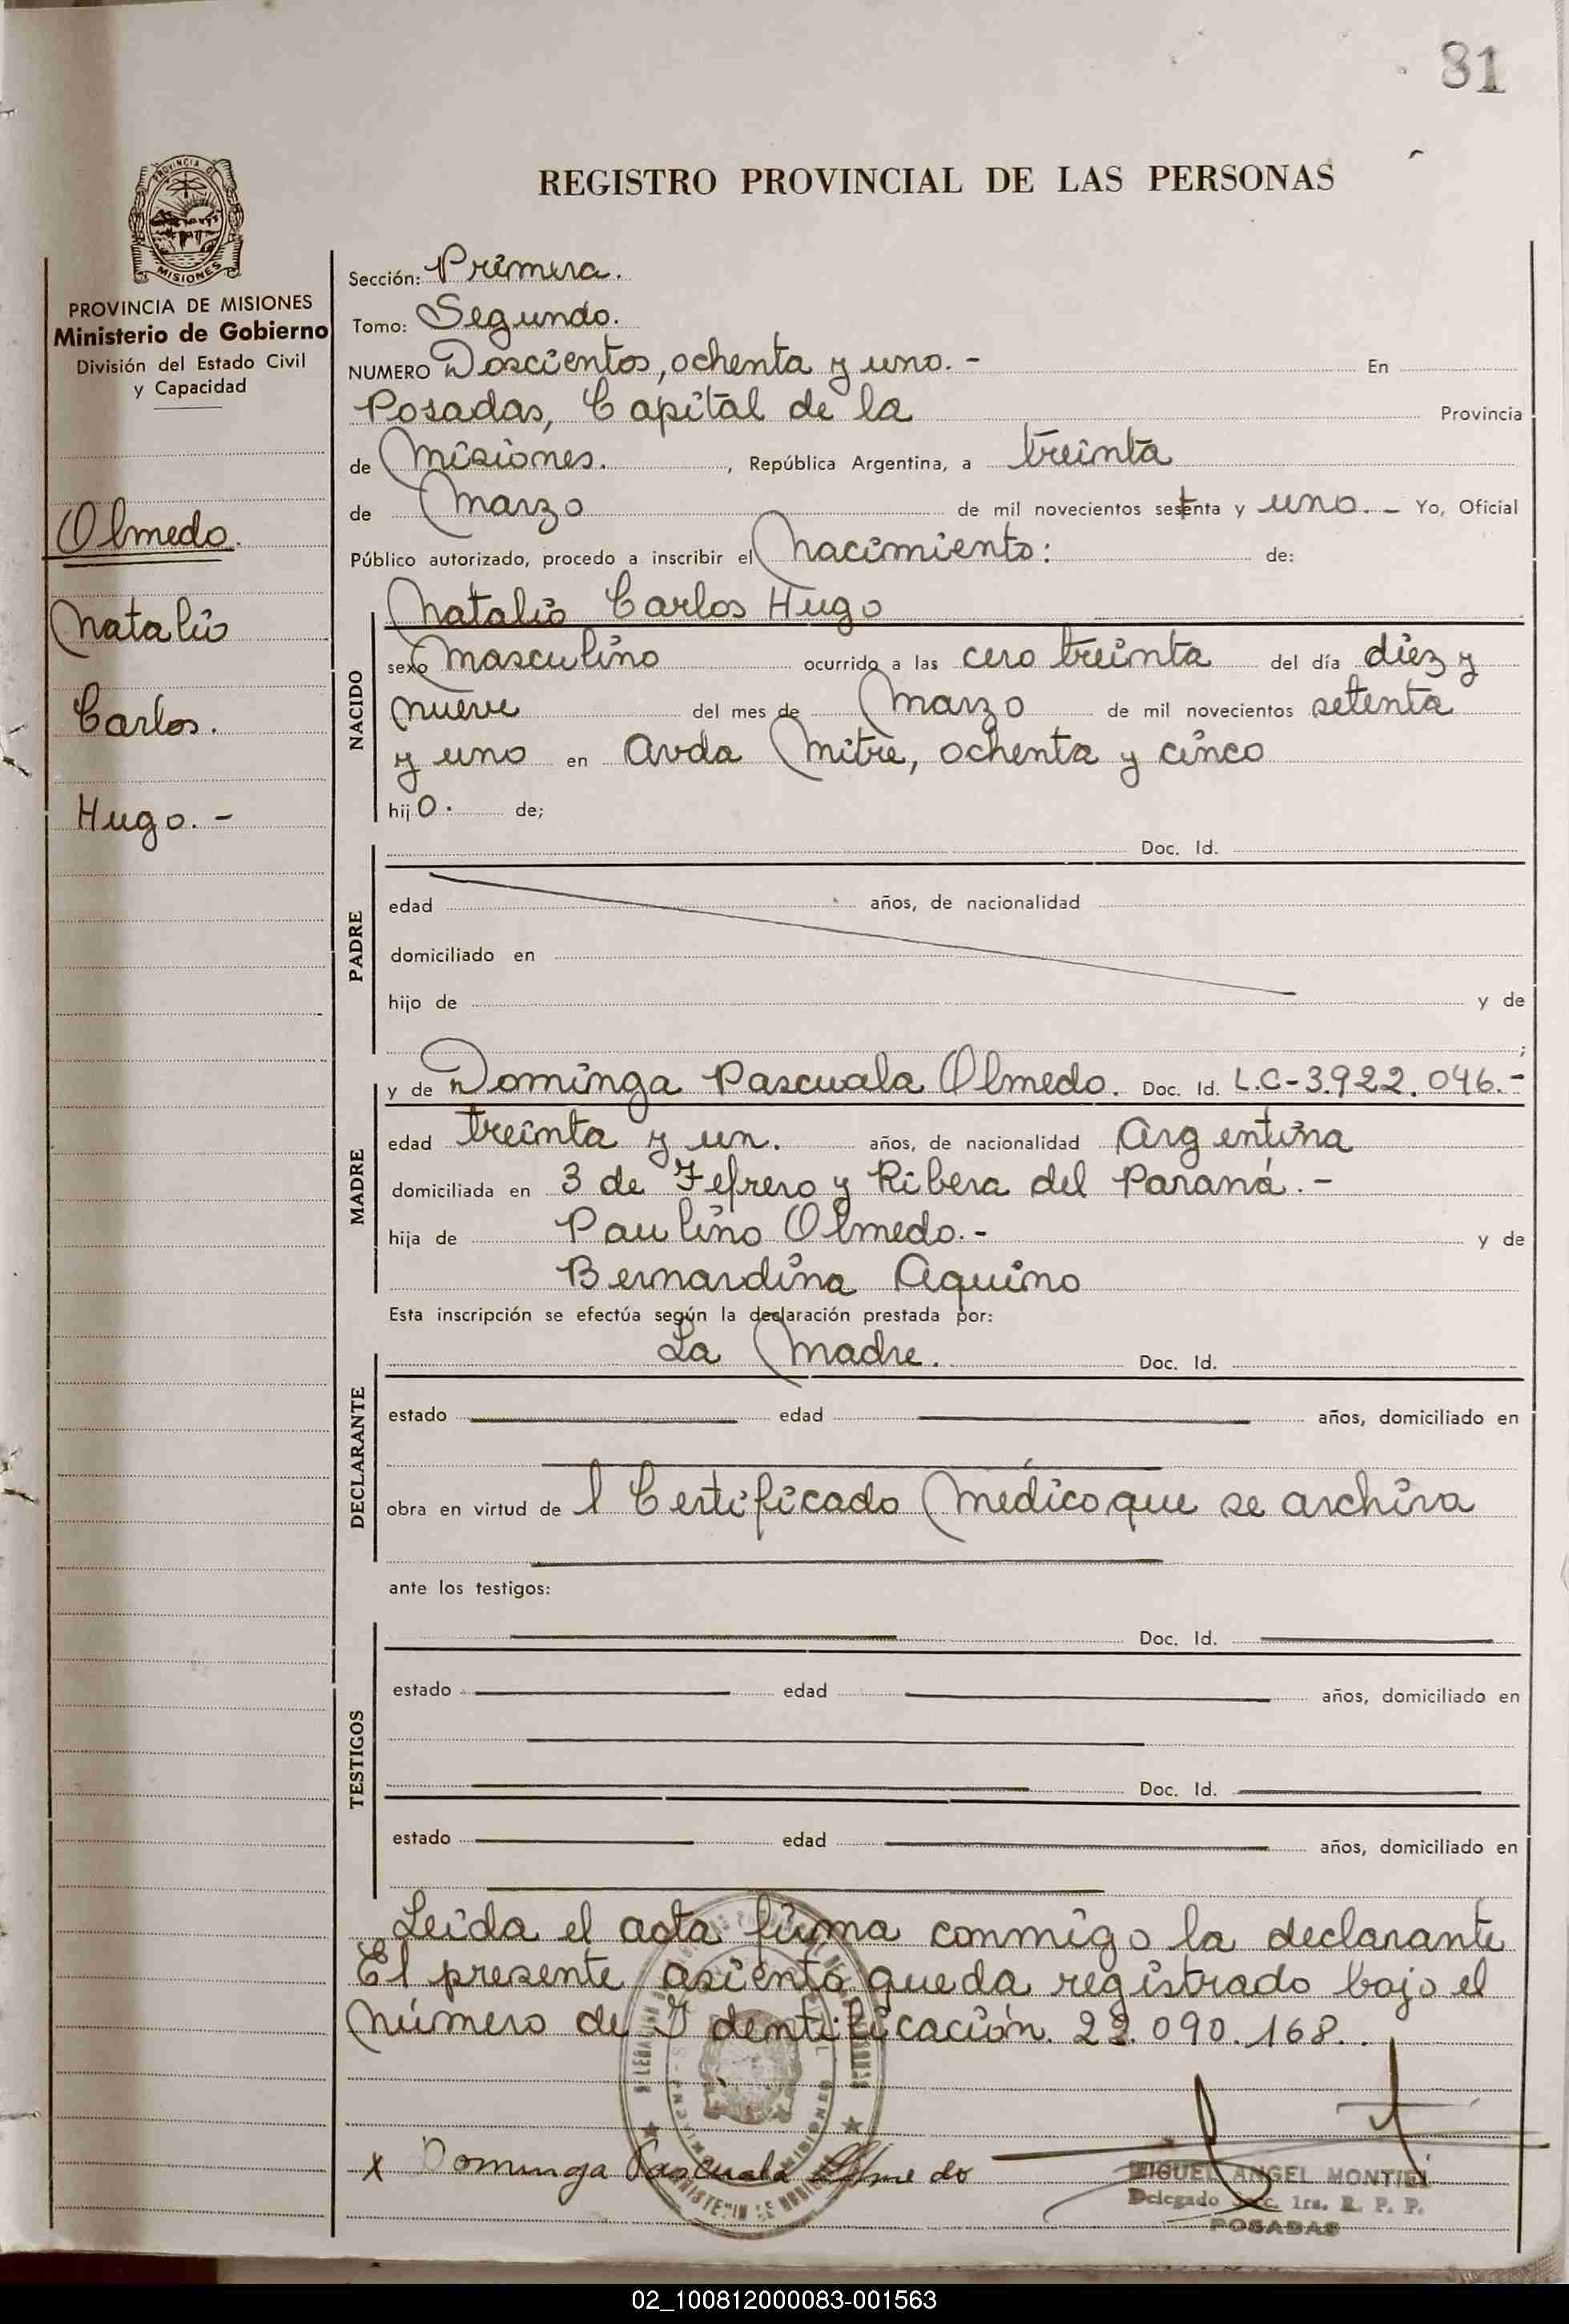 81
PROVINCIA DE
MISIONES
REGISTRO PROVINCIAL DE LAS PERSONAS
PROVINCIA DE MISIONES
Ministerio de Gobierno
División del Estado Civil
y Capacidad
Olmedo.
Natalio
Carlos.
Hugo. -
Sección: Primera.
Tomo: Segundo.
NUMERO Doscientos, ochenta y uno. - En
Posadas, Capital de la Provincia
de Misiones. , República Argentina, a treinta
de Marzo de mil novecientos setenta y uno. - Yo, Oficial
Público autorizado, procedo a inscribir el Nacimiento: de:
NACIDO
Natalio Carlos Hugo
sexo Masculino ocurrido a las cero treinta del día diez y
nueve del mes de Marzo de mil novecientos setenta
y uno en Avda Mitre, ochenta y cinco
hijo. de;
PADRE
Doc. Id.
edad años, de nacionalidad
domiciliado en
hijo de y de
;
MADRE
y de Dominga Pascuala Olmedo. Doc. Id. L.C-3.922.046.-
edad treinta y un. años, de nacionalidad Argentina
domiciliada en 3 de Fefrero y Ribera del Paraná. -
hija de Paulino Olmedo. - y de
Bernardina Aquino
Esta inscripción se efectúa según la declaración prestada por:
DECLARANTE
La Madre. Doc. Id.
estado edad años, domiciliado en
obra en virtud de l Certificado Médico que se archiva
ante los testigos:
TESTIGOS
Doc. Id.
estado edad años, domiciliado en
Doc. Id.
estado edad años, domiciliado en
Leida el acta firma conmigo la declarante
El presente asiento queda registrado bajo el
Número de Identificación. 22.090.168..
x Dominga Pascuala Olmedo
MIGUEL ANGEL MONTIEL
Delegado Sec. 1ra. R. P. P.
POSADAS
02_100812000083-001563